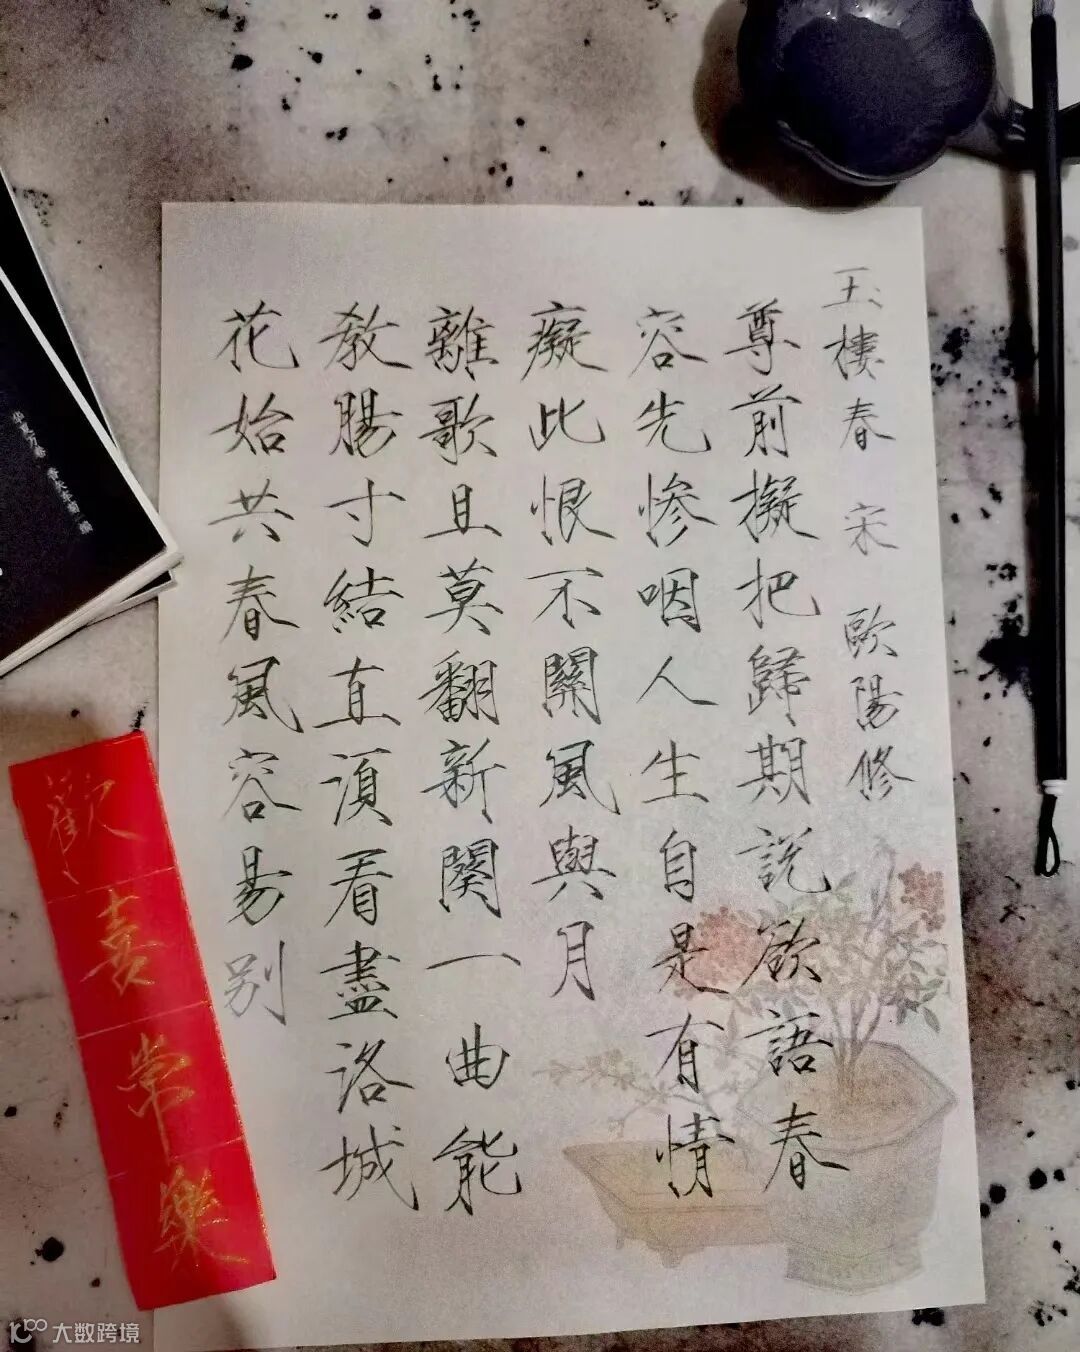 玉樓春 宋 歐陽修
尊前擬把歸期說欲語春
容先惨咽人生自是有情
癡此恨不關風與月
離歌且莫翻新闋一曲能
教腸寸結直須看盡洛城
花始共春風容易别
歡喜常樂
大数跨境